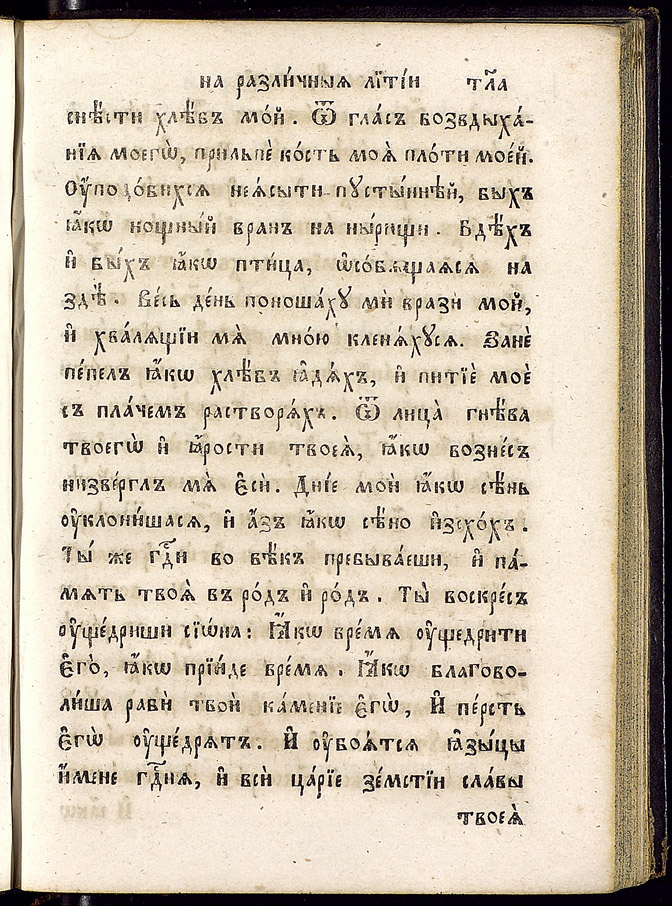 на разли́чныѧ лїтїи тл҃а
снѣ́сти хлѣ́бъ мо́й. Ѿ гла́съ воздыха́-
нїѧ моегѡ̀, прильпѐ ко́сть моѧ̀ пло́ти мое́й.
Оу҆подо́бихсѧ неѧ́сыти пꙋсты́ннѣй, бы́хъ
ꙗ҆́кѡ нощны́й вра́нъ на ны́рищи. Бдѣ́хъ
и҆ бы́хъ ꙗ҆́кѡ пти́ца, ѡ҆со́бѧщаѧсѧ на
здѣ̀. Ве́сь де́нь поноша́хꙋ мѝ вразѝ мои̑,
и҆ хвалѧ́щїи мѧ̀ мно́ю кленѧ́хꙋсѧ. Занѐ
пе́пелъ ꙗ҆́кѡ хлѣ́бъ ꙗ҆дѧ́хъ, и҆ питїѐ моѐ
съ пла́чемъ растворѧ́хъ. Ѿ лица̀ гнѣ́ва
твоегѡ̀ и҆ ꙗ҆́рости твоеѧ̀, ꙗ҆́кѡ возне́съ
низве́рглъ мѧ̀ є҆сѝ. Дні́е мои̑ ꙗ҆́кѡ сѣ́нь
оу҆клони́шасѧ, и҆ а҆́зъ ꙗ҆́кѡ сѣ́но и҆зсхо́хъ.
Ты́ же гдⷭ҇и во вѣ́къ пребыва́еши, и҆ па́-
мѧть твоѧ̀ въ ро́дъ и҆ ро́дъ. Ты̀ воскре́съ
оу҆ще́дриши сїѡ́на: Ꙗ҆́кѡ вре́мѧ оу҆щедри́ти
є҆го̀, ꙗ҆́кѡ прїи́де вре́мѧ. Ꙗ҆́кѡ благово-
ли́ша рабѝ твоѝ ка́менїе є҆гѡ̀, И҆ пе́рсть
є҆гѡ̀ оу҆ще́дрѧтъ. И҆ оу҆боѧ́тсѧ ꙗ҆зы́цы
и҆́мене гдⷭ҇нѧ, и҆ всѝ ца́рїе зе́мстїи сла́вы
твоеѧ̀